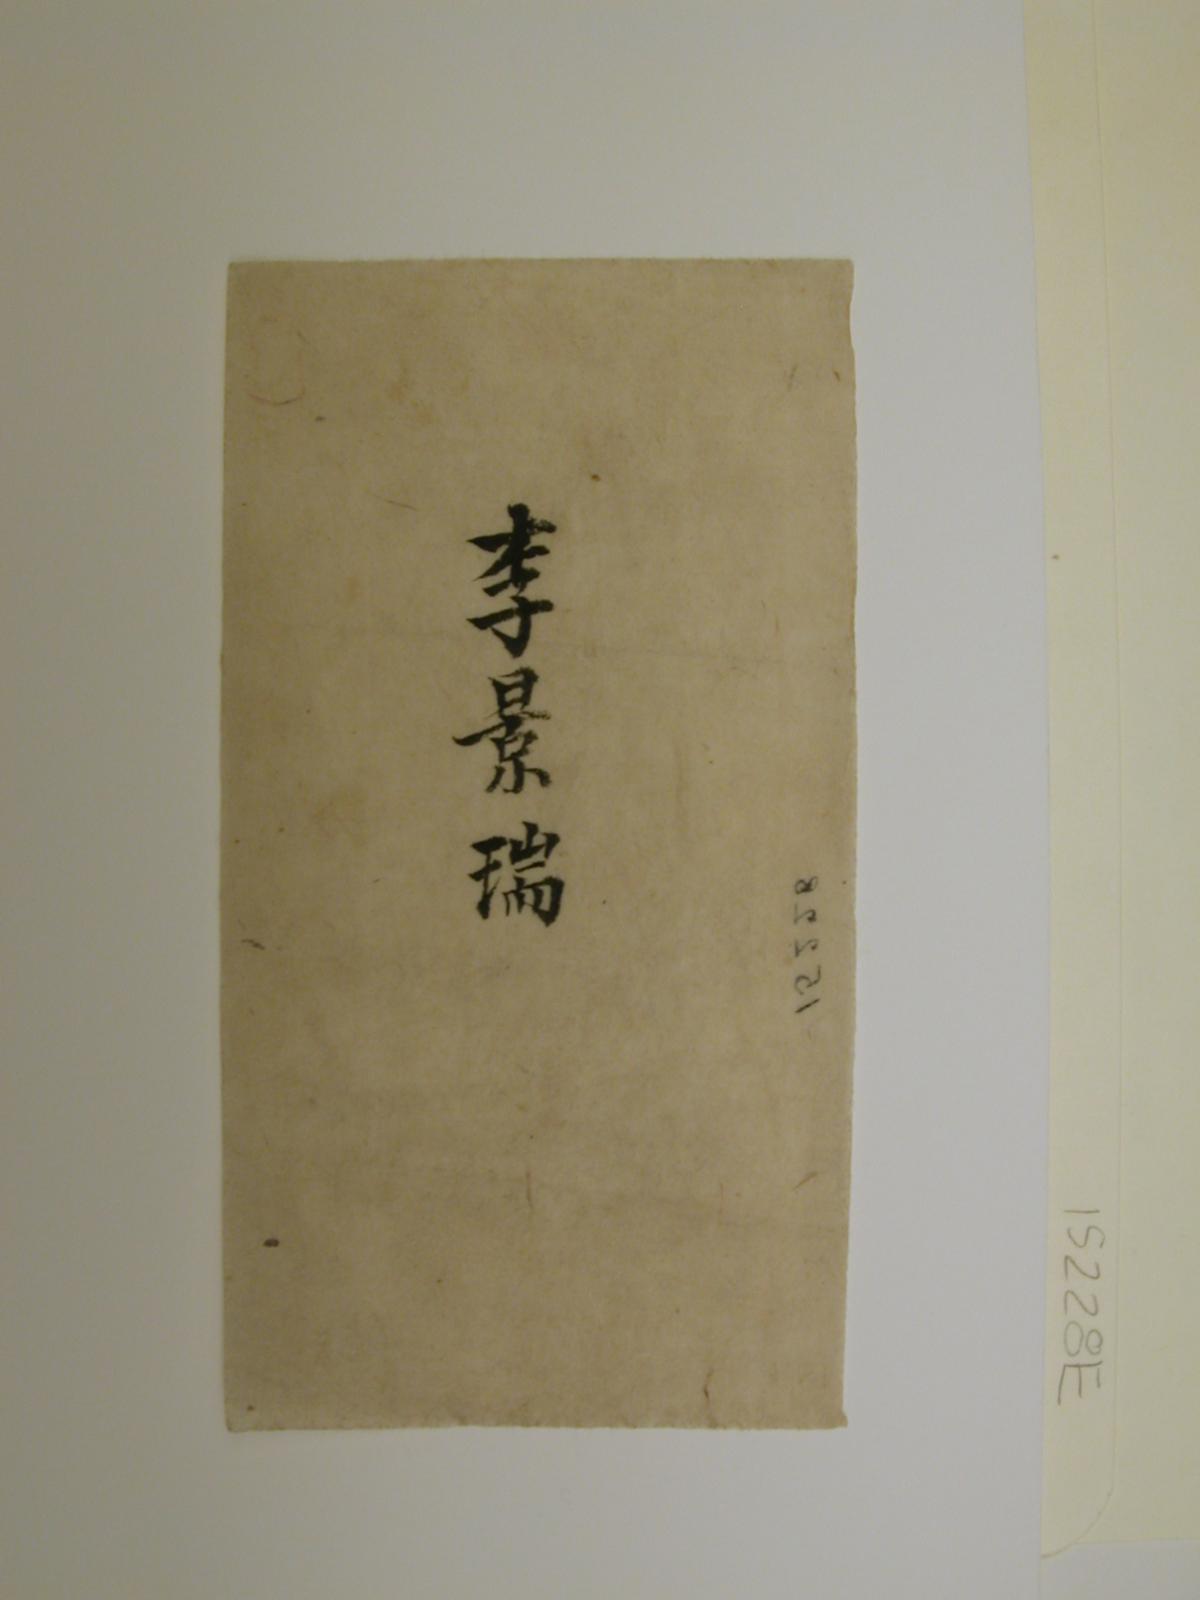 李景瑞
15228
15228E